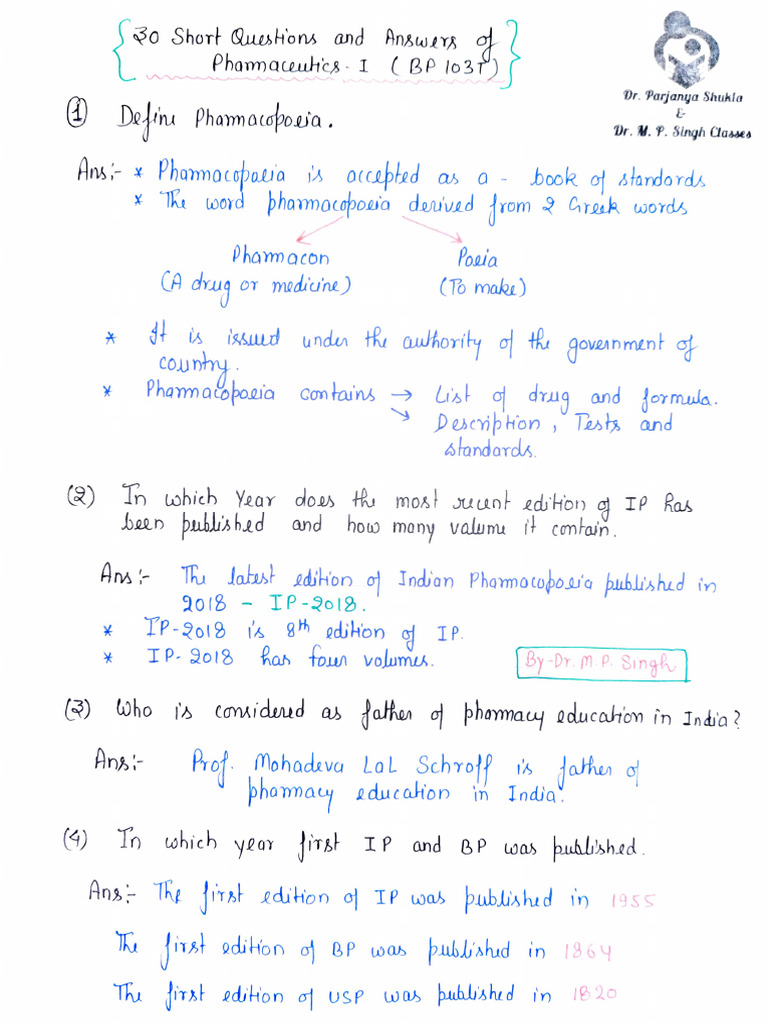 30 Short Questions and Answers of
Pharmaceutics-I (BP 103T)
Dr. Parjanya Shukla
&
Dr. M. P. Singh Classes
(1) Define Pharmacopoeia.
Ans:- * Pharmacopoeia is accepted as a - book of standards
* The word pharmacopoeia derived from 2 Greek words
Pharmacon Poeia
(A drug or medicine) (To make)
* It is issued under the authority of the government of
country.
* Pharmacopoeia contains → List of drug and formula.
↘ Description, Tests and
standards.
(2) In which Year does the most recent edition of IP has
been published and how many volume it contain.
Ans:- The latest edition of Indian Pharmacopoeia published in
2018 - IP-2018.
* IP-2018 is 8th edition of IP.
* IP-2018 has four volumes.
By-Dr. M.P. Singh
(3) Who is considered as father of pharmacy education in India?
Ans:- Prof. Mahadeva Lal Schroff is father of
pharmacy education in India.
(4) In which year first IP and BP was published.
Ans:- The first edition of IP was published in 1955
The first edition of BP was published in 1864
The first edition of USP was published in 1820